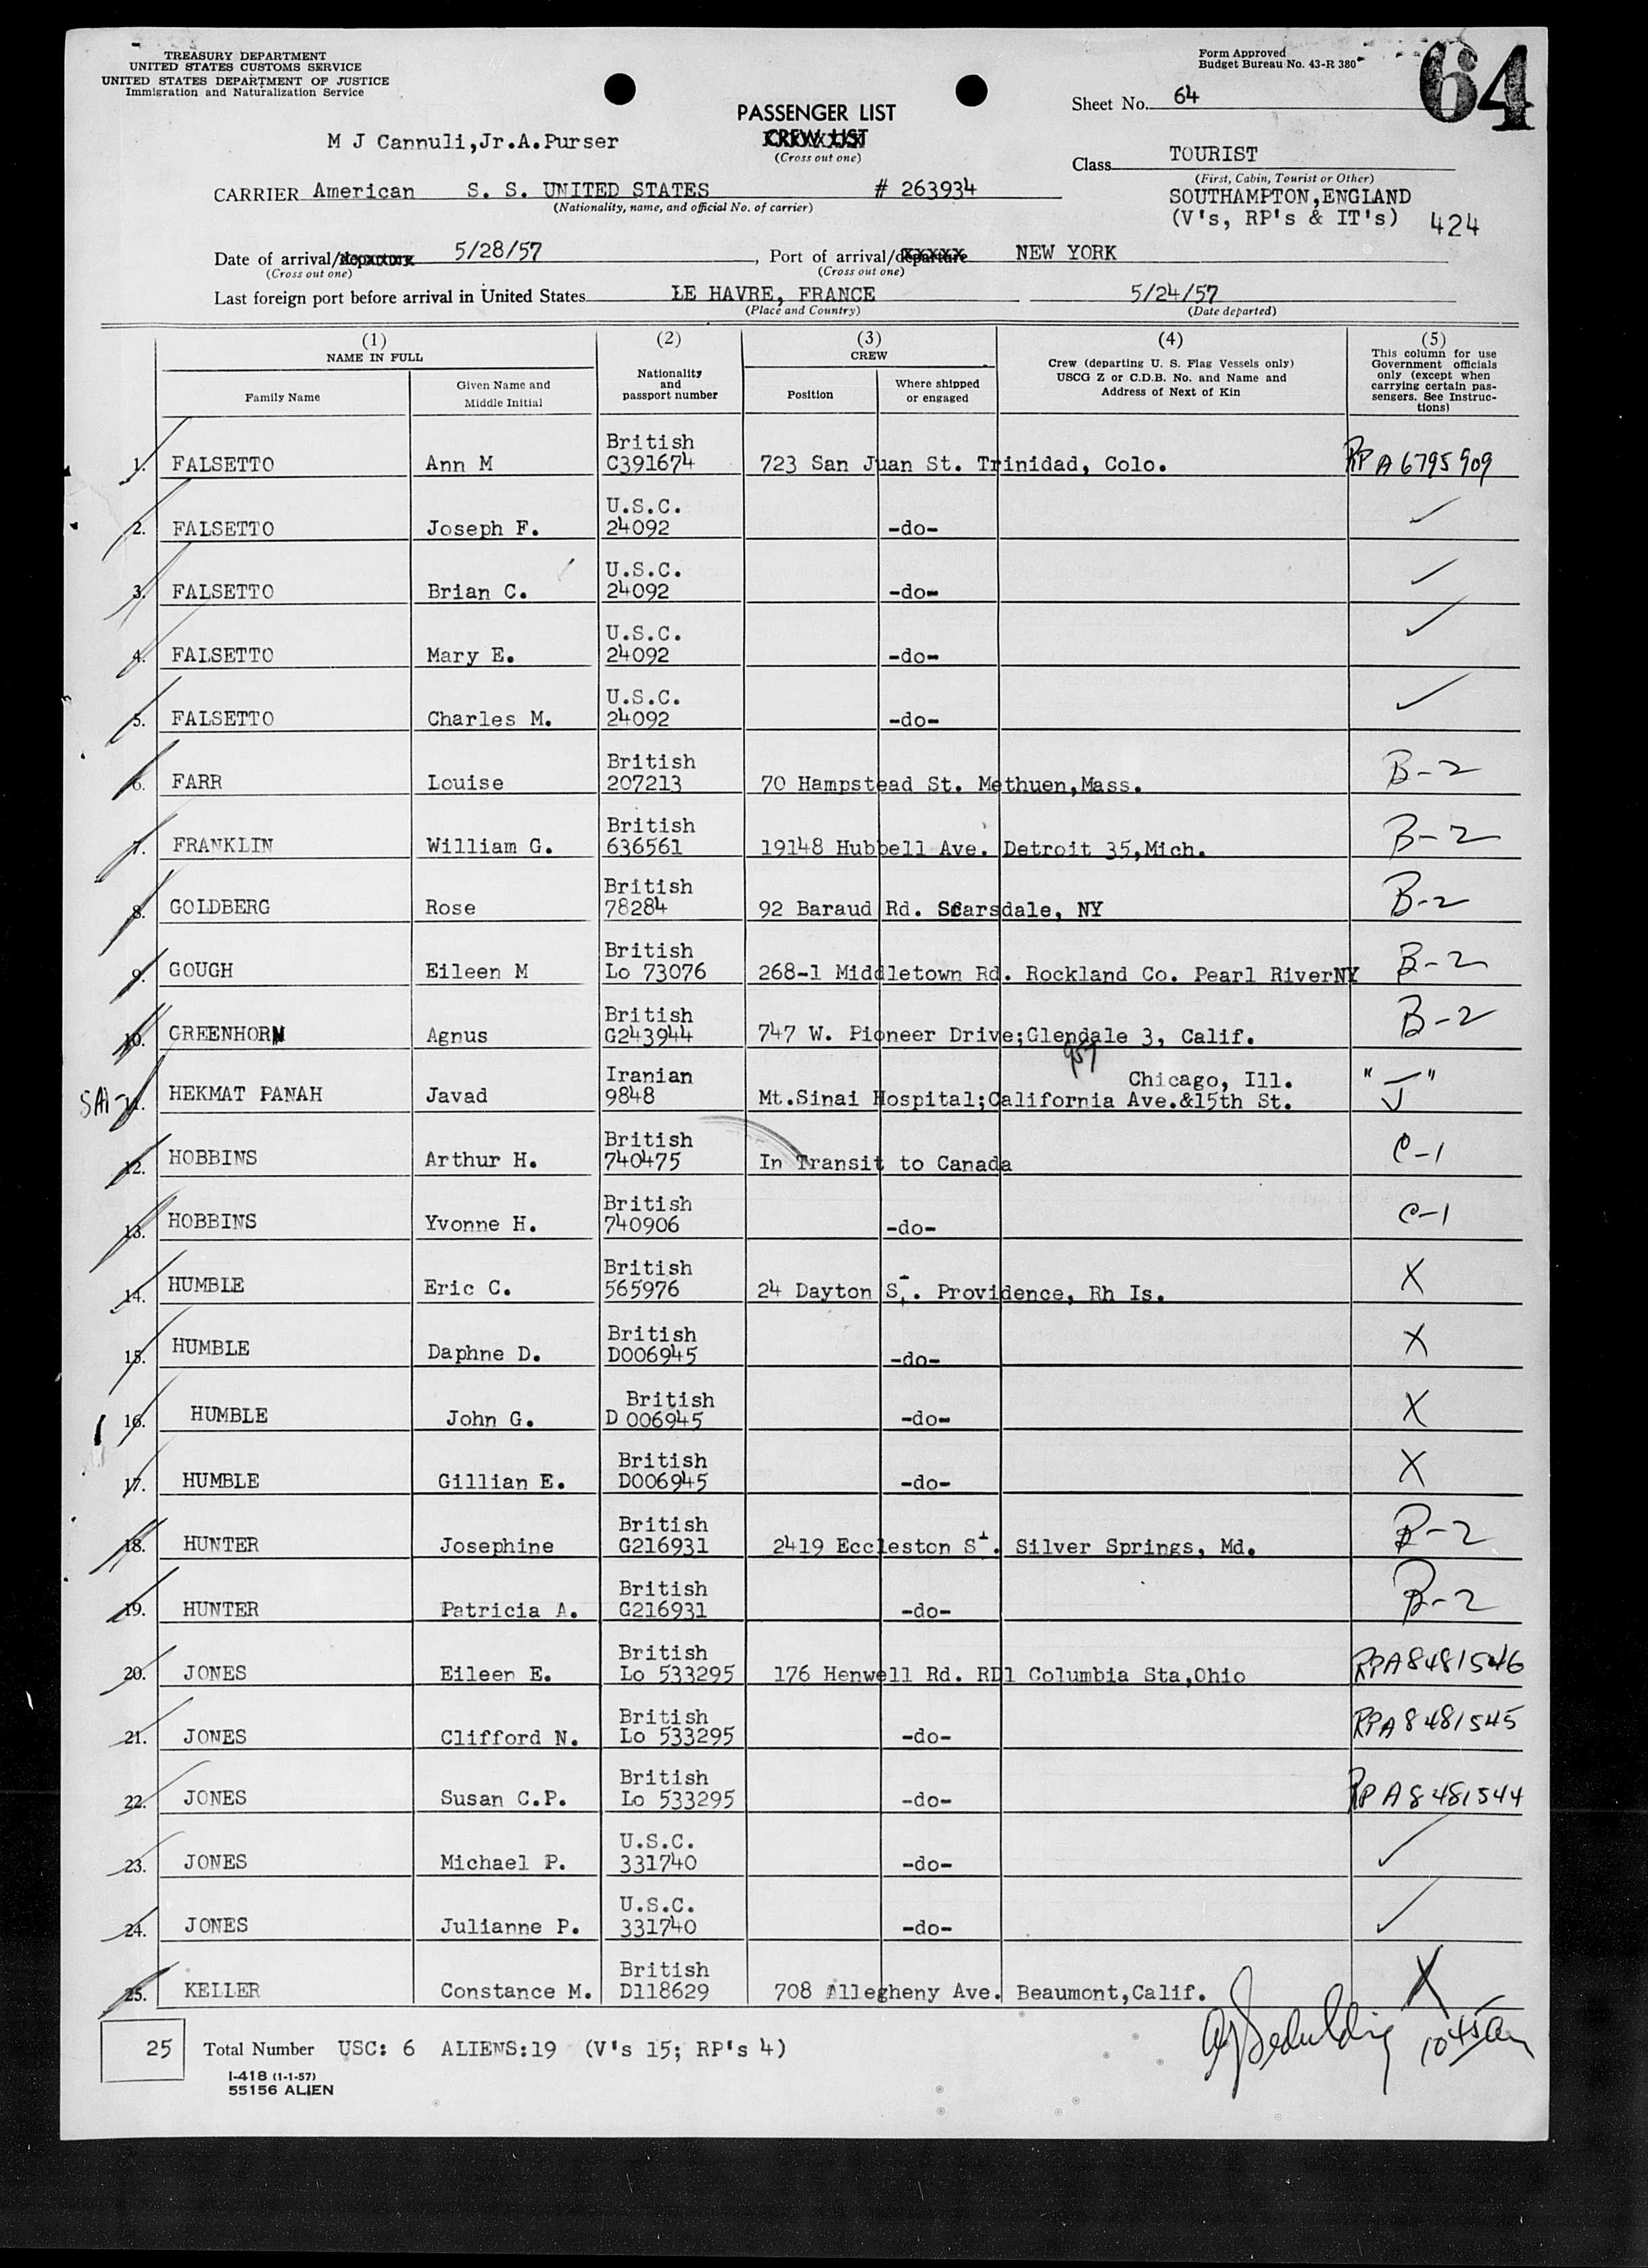 TREASURY DEPARTMENT
UNITED STATES CUSTOMS SERVICE
UNITED STATES DEPARTMENT OF JUSTICE
Immigration and Naturalization Service
Form Approved
Budget Bureau No. 43-R 380
64
Sheet No. 64
PASSENGER LIST
CREW LIST
(Cross out one)
M J Cannuli,Jr.A.Purser
Class TOURIST
(First, Cabin, Tourist or Other)
CARRIER American S. S. UNITED STATES # 263934
(Nationality, name, and official No. of carrier)
SOUTHAMPTON,ENGLAND
(V's, RP's & IT's) 424
Date of arrival/departure 5/28/57, Port of arrival/departure NEW YORK
(Cross out one) (Cross out one)
Last foreign port before arrival in United States LE HAVRE, FRANCE 5/24/57
(Place and Country) (Date departed)
(1) (2) (3) (4) (5)
NAME IN FULL
Family Name
Given Name and
Middle Initial
Nationality
and
passport number
CREW
Position
Where shipped
or engaged
Crew (departing U. S. Flag Vessels only)
USCG Z or C.D.B. No. and Name and
Address of Next of Kin
This column for use
Government officials
only (except when
carrying certain pas-
sengers. See Instruc-
tions)
British
1. FALSETTO Ann M C391674 723 San Juan St. Trinidad, Colo. RP A6795909
U.S.C.
2. FALSETTO Joseph F. 24092 -do- ✓
U.S.C.
3. FALSETTO Brian C. 24092 -do- ✓
U.S.C.
4. FALSETTO Mary E. 24092 -do- ✓
U.S.C.
5. FALSETTO Charles M. 24092 -do- ✓
British
6. FARR Louise 207213 70 Hampstead St. Methuen,Mass. B-2
British
7. FRANKLIN William G. 636561 19148 Hubbell Ave. Detroit 35,Mich. B-2
British
8. GOLDBERG Rose 78284 92 Baraud Rd. Scarsdale, NY B-2
British
9. GOUGH Eileen M Lo 73076 268-1 Middletown Rd. Rockland Co. Pearl RiverNY B-2
British
10. GREENHORN Agnus G243944 747 W. Pioneer Drive;Glendale 3, Calif. B-2
957
Iranian Chicago, Ill.
11. HEKMAT PANAH Javad 9848 Mt.Sinai Hospital;California Ave.&15th St. "J"
British
12. HOBBINS Arthur H. 740475 In Transit to Canada C-1
British
13. HOBBINS Yvonne H. 740906 -do- C-1
British
14. HUMBLE Eric C. 565976 24 Dayton St. Providence, Rh Is. X
British
15. HUMBLE Daphne D. D006945 -do- X
British
16. HUMBLE John G. D 006945 -do- X
British
17. HUMBLE Gillian E. D006945 -do- X
British
18. HUNTER Josephine G216931 2419 Eccleston St. Silver Springs, Md. B-2
British
19. HUNTER Patricia A. G216931 -do- B-2
British
20. JONES Eileen E. Lo 533295 176 Henwell Rd. RD1 Columbia Sta,Ohio RPA8481546
British
21. JONES Clifford N. Lo 533295 -do- RPA8481545
British
22. JONES Susan C.P. Lo 533295 -do- RPA8481544
U.S.C.
23. JONES Michael P. 331740 -do- ✓
U.S.C.
24. JONES Julianne P. 331740 -do- ✓
British
25. KELLER Constance M. D118629 708 Allegheny Ave. Beaumont,Calif. X
25 Total Number USC: 6 ALIENS:19 (V's 15; RP's 4)
I-418 (1-1-57)
55156 ALIEN